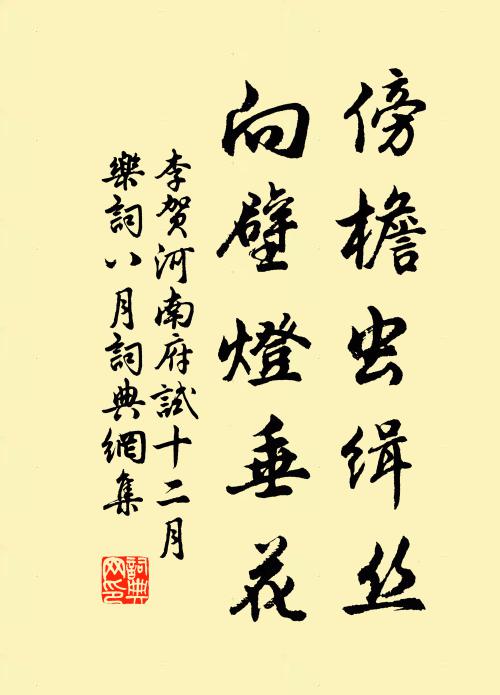 傍檐虫缉丝
向壁燈垂花
李贺河南府試十二月
樂詞八月詞典網集
詞典
网印